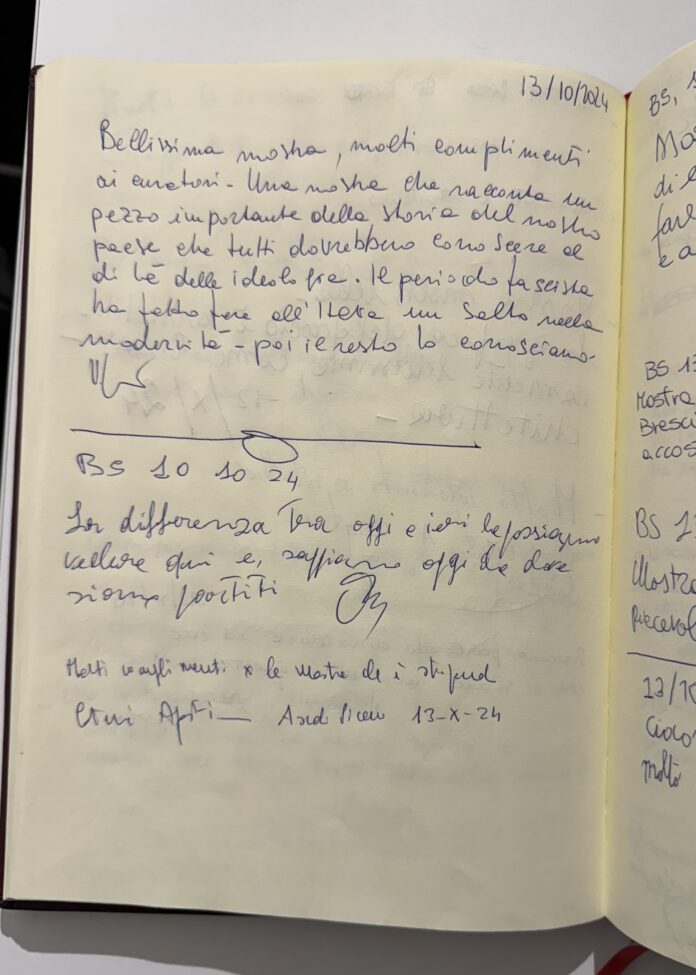 13/10/2024
Bellissima mostra, molti complimenti
ai curatori - Una mostra che racconta un
pezzo importante della storia del nostro
paese che tutti dovrebbero conoscere al
di là delle ideologie. Il periodo fascista
ha fatto fare all'Italia un salto nella
modernità - poi il resto lo conosciamo.
BS 10 10 24
La differenza tra oggi e ieri la possiamo
vedere qui e, sappiamo oggi da dove
siamo partiti
Molti complimenti x la mostra
13-X-24
BS,
Mo
di
far
e a
BS 13
Mostra
Bresci
accos
BS 13
Mostra
13/10
molto